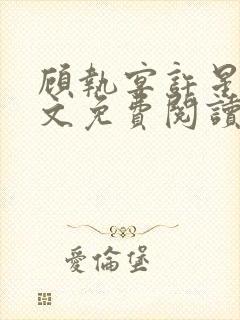 顧執宴許星
文免費閱讀
愛倫堡